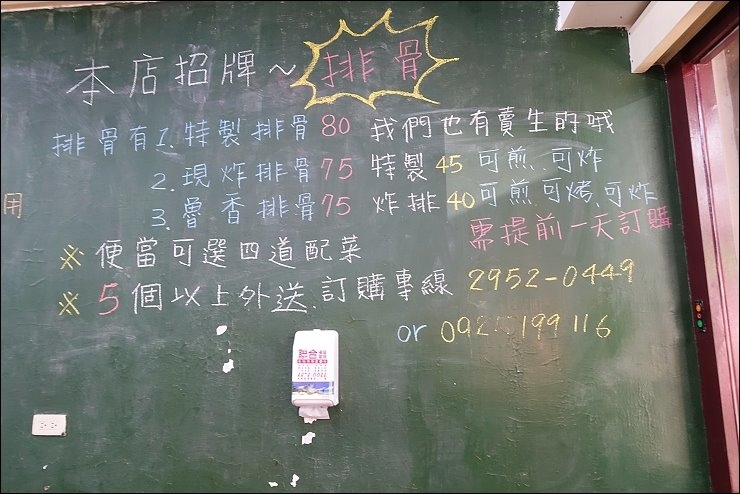 本店招牌~ 排骨
排骨有 1. 特製排骨 80 我們也有賣生的哦
2. 現炸排骨 75 特製 45 可煎、可炸
3. 魯香排骨 75 炸排 40 可煎、可烤、可炸
用
需提前一天訂購
※ 便當可選四道配菜
※ 5個以上外送、訂購專線 2952-0449
or 0925 199 116
聯合